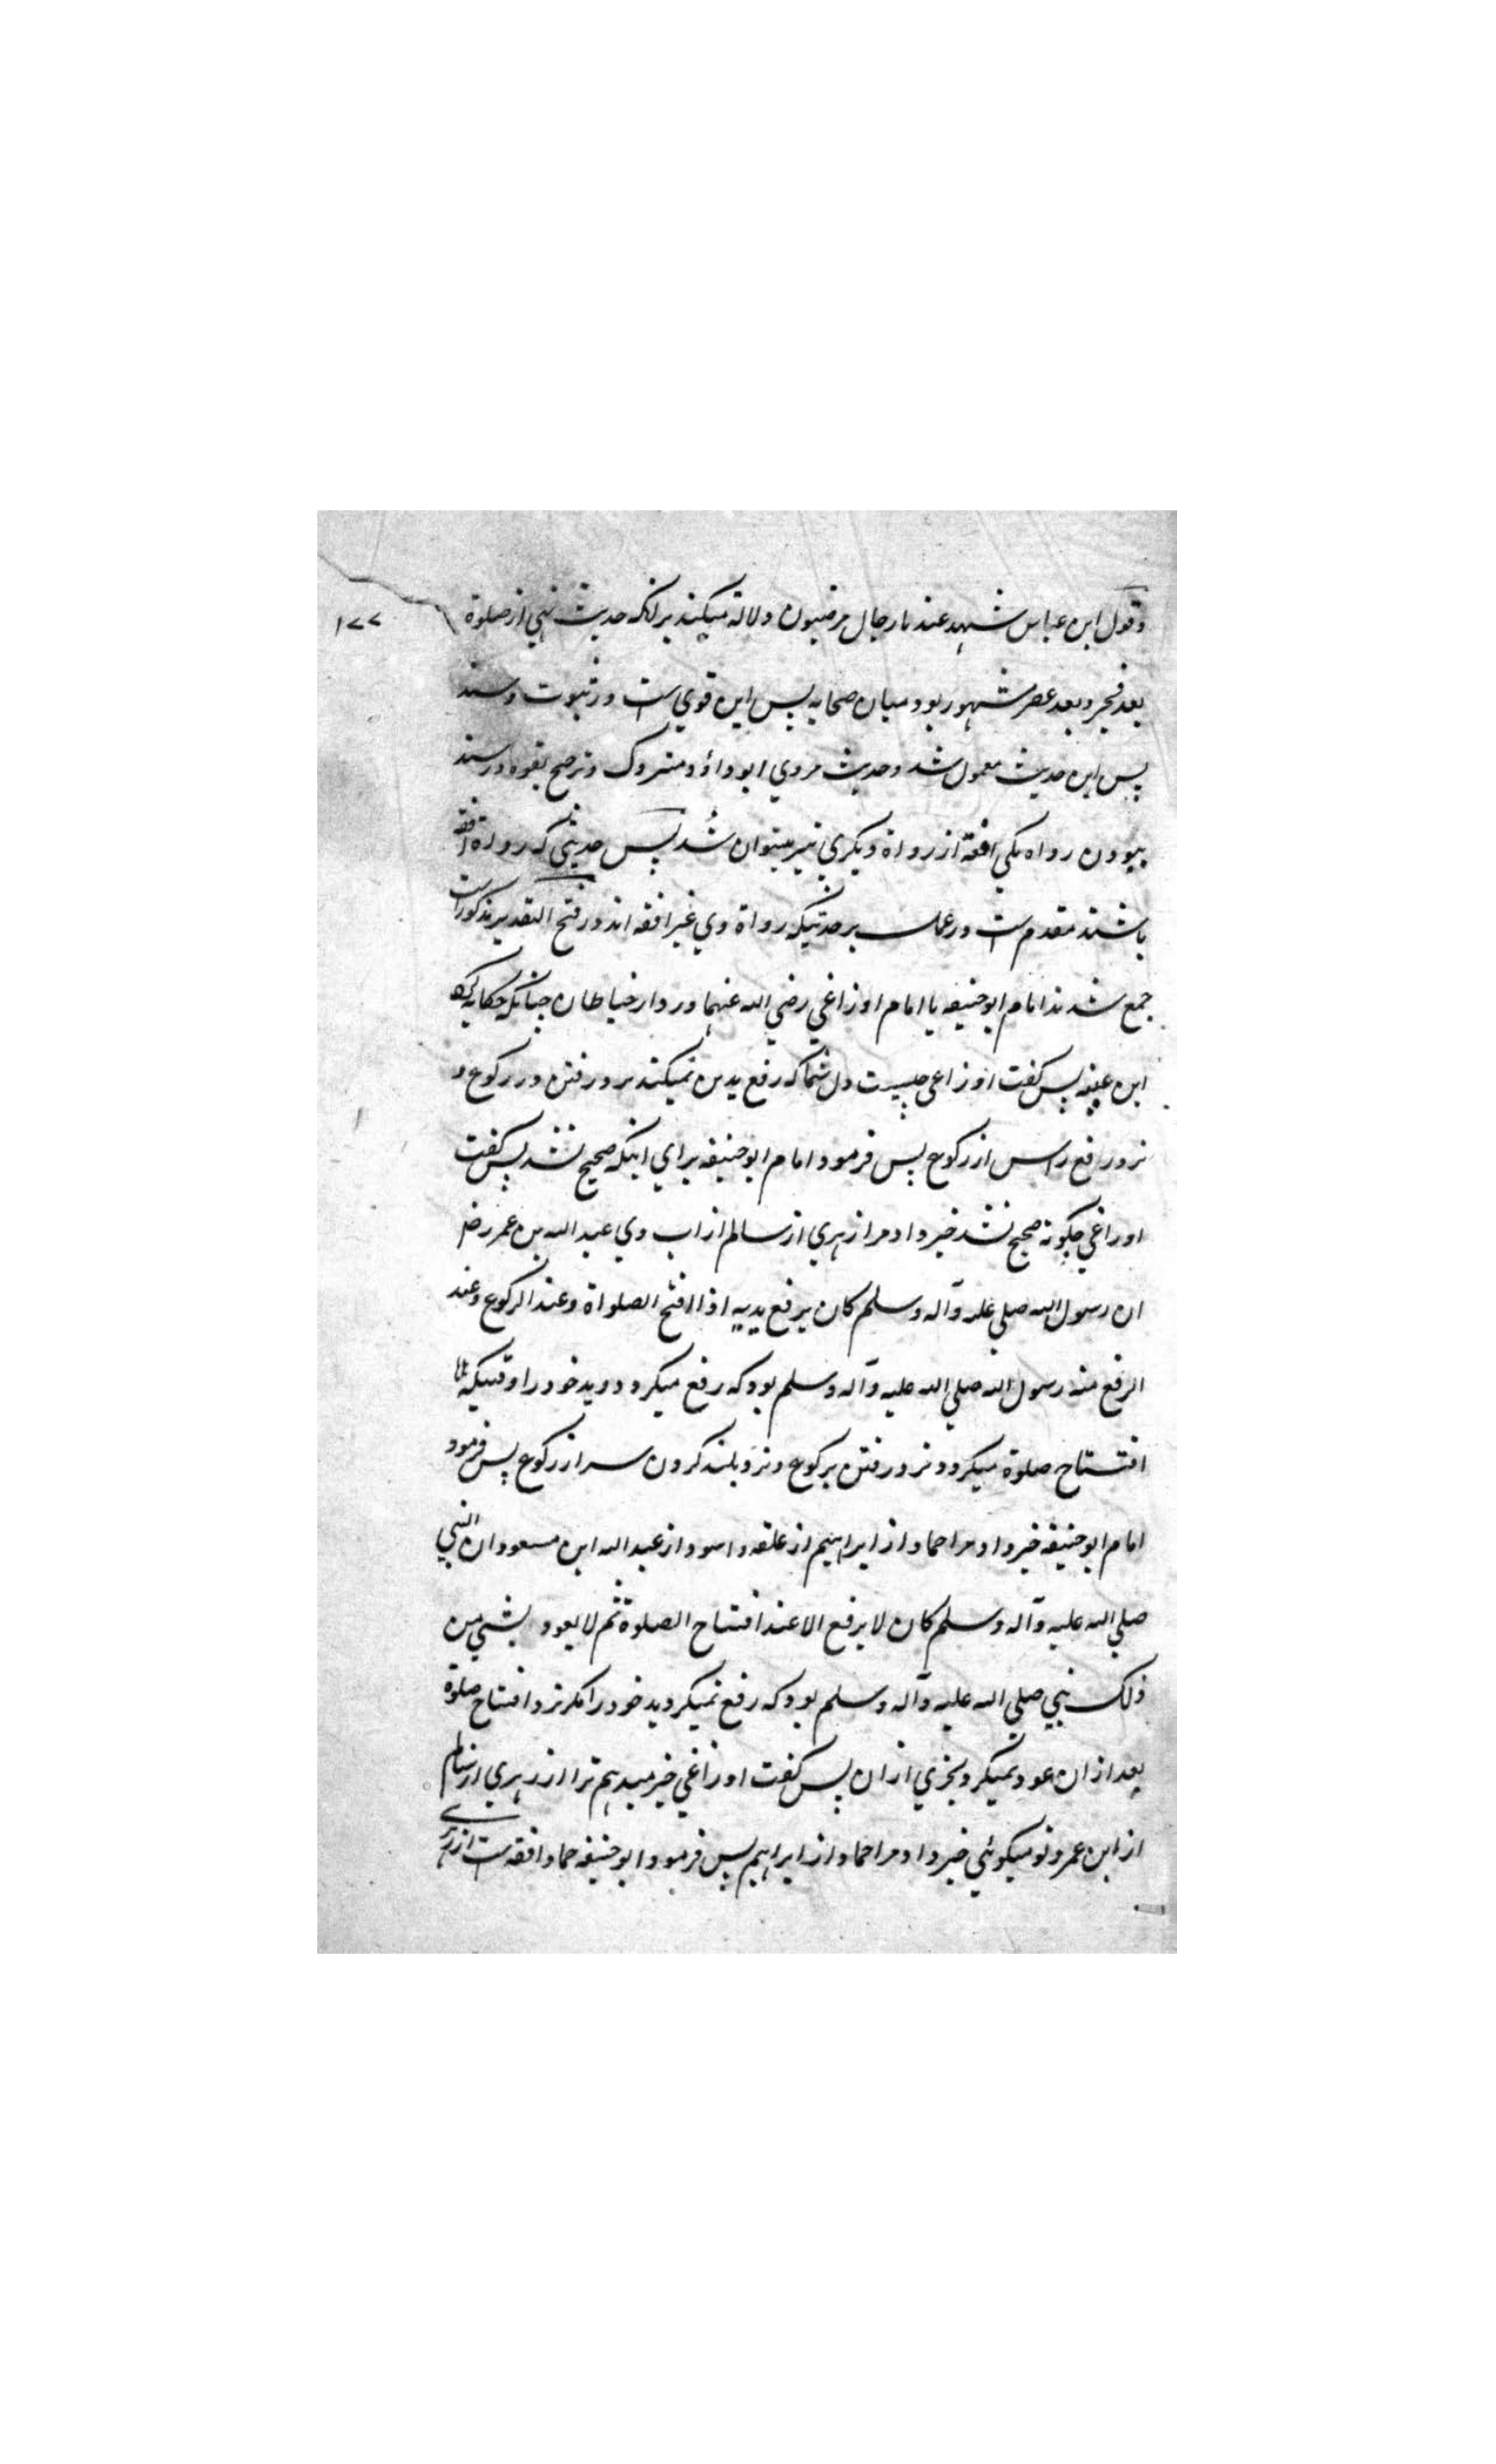 ١٧٧
وقول ابن عباس شهد عند نا رجال مرضیون دلالة میکند بر انکه حدیث نهی از صلوة
بعد فجر و بعد عصر مشهور بود میان صحابه پس این قوی ست در ثبوت و سند
پس این حدیث معمول شد و حدیث مروی ابو داؤد متروک و ترجیح بقوة در سند
ببودن رواه یکی افقه از رواة دیگری نیز میتوان شد پس حدیثی که رواة افقه
باشند مقدم ست در عمل بر حدیثیکه رواة وی غیر افقه اند در فتح القدیر مذکور است
جمع شدند امام ابو حنیفه با امام اوزاعی رضی الله عنهما در دار خیاطان چنانکه حکایة کرد
ابن عیینه پس گفت اوزاعی چیست دل شما که رفع یدین نمیکنند نزد رفتن در رکوع و
نزد رفع راس از رکوع پس فرمود امام ابو حنیفه برای اینکه صحیح نشد پس گفت
اوزاعی چگونه صحیح نشد خبر داد مرا زهری از سالم از اب وی عبد الله بن عمر رض
ان رسول الله صلی علیه وآله وسلم کان یرفع یدیه اذا افتتح الصلواة وعند الرکوع وعند
الرفع منه رسول الله صلی الله علیه وآله وسلم بود که رفع میکرد دو ید خود را وقتیکه
افتتاح صلوة میکرد و نزد رفتن برکوع و نزد بلند کردن سر از رکوع پس فرمود
امام ابو حنیفه خبر داد مرا حماد از ابراهیم از علقمه و اسود از عبد الله ابن مسعود ان النبی
صلی الله علیه وآله وسلم کان لا یرفع الا عند افتتاح الصلوة ثم لا یعود بشی من
ذلک نبی صلی الله علیه وآله وسلم بود که رفع نمیکرد ید خود را مگر نزد افتتاح صلوة
بعد از ان عود نمیکرد بچیزی از ان پس گفت اوزاعی خبر میدهم ترا از زهری از سالم
از ابن عمر و تو میگوئی خبر داد مرا حماد از ابراهیم پس فرمود ابو حنیفه حماد افقه ست از زهری